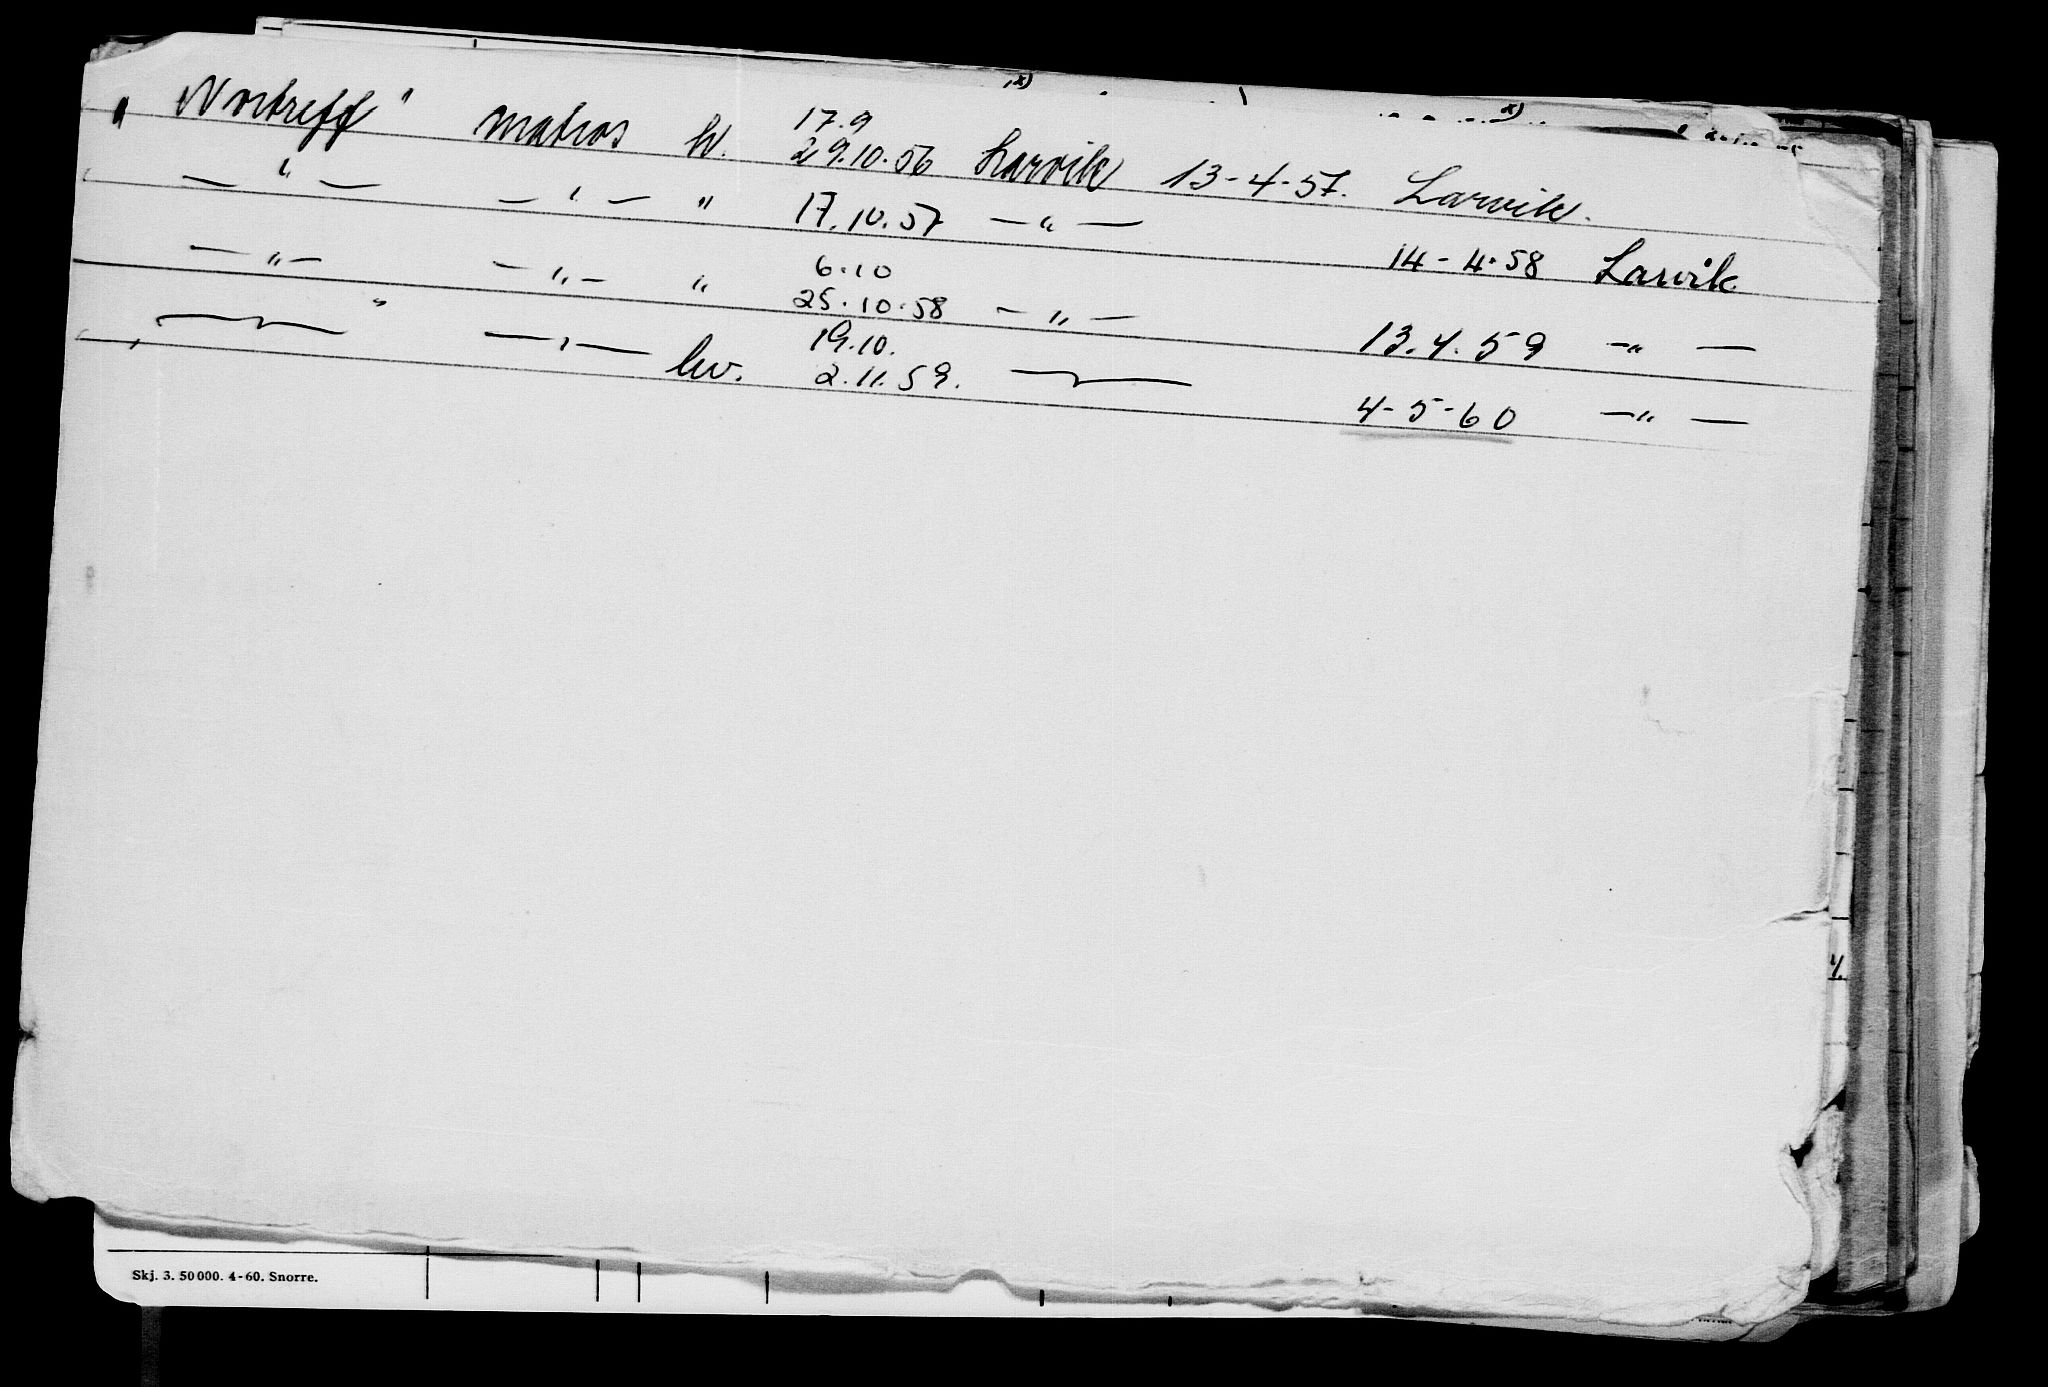 x) x)
17.9
" Nortreff " matros hv. 29.10.56 Larvik 13-4-57. Larvik.
— " — — " — " 17.10.57 — " — 14-4-58 Larvik
6.10
— " — — " — " 25.10.58 — " — 13.4.59 — " —
19.10.
" — — " — hv. 2.11.59. — 4-5-60 — " —
Skj. 3. 50 000. 4-60. Snorre.